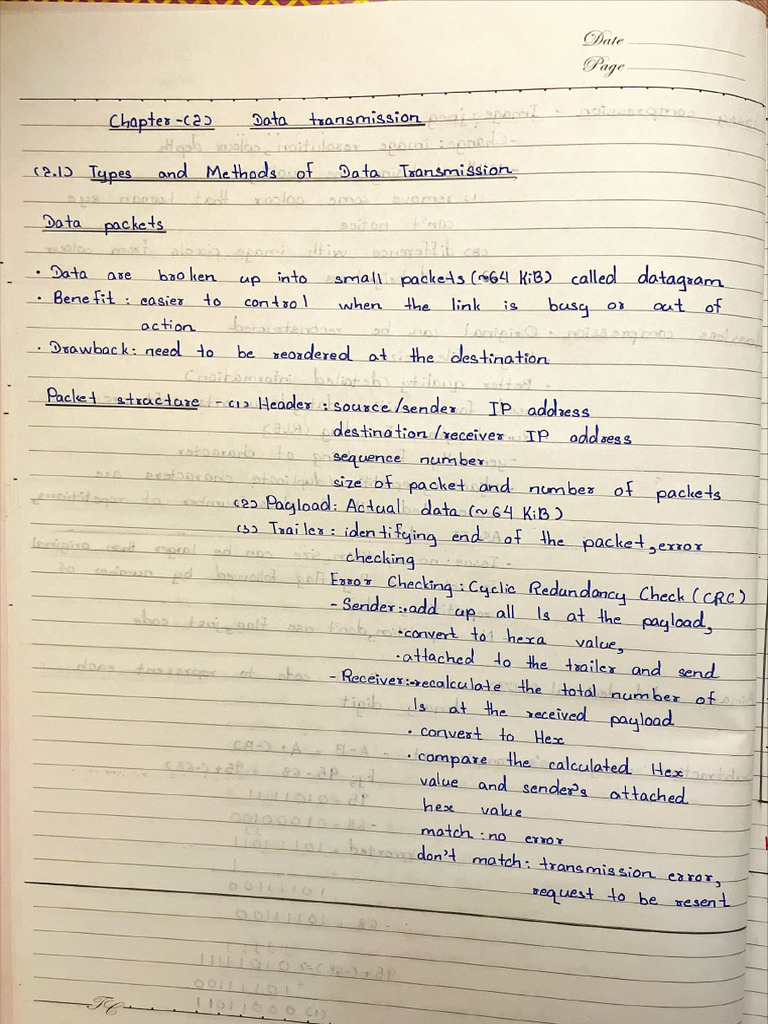 Date
Page
Chapter-(2) Data transmission
(2.1) Types and Methods of Data Transmission
Data packets
• Data are broken up into small packets (~64 KiB) called datagram
• Benefit : easier to control when the link is busy or out of
action
• Drawback : need to be reordered at the destination
Packet structure - (1) Header : source/sender IP address
destination/receiver IP address
sequence number
size of packet and number of packets
(2) Payload : Actual data (~64 KiB)
(3) Trailer : identifying end of the packet, error
checking
Error Checking : Cyclic Redundancy Check (CRC)
- Sender : • add up all 1s at the payload,
• convert to hexa value,
• attached to the trailer and send
- Receiver : • recalculate the total number of
1s at the received payload
• convert to Hex
• compare the calculated Hex
value and sender's attached
hex value
match : no error
don't match : transmission error,
request to be resent
TC